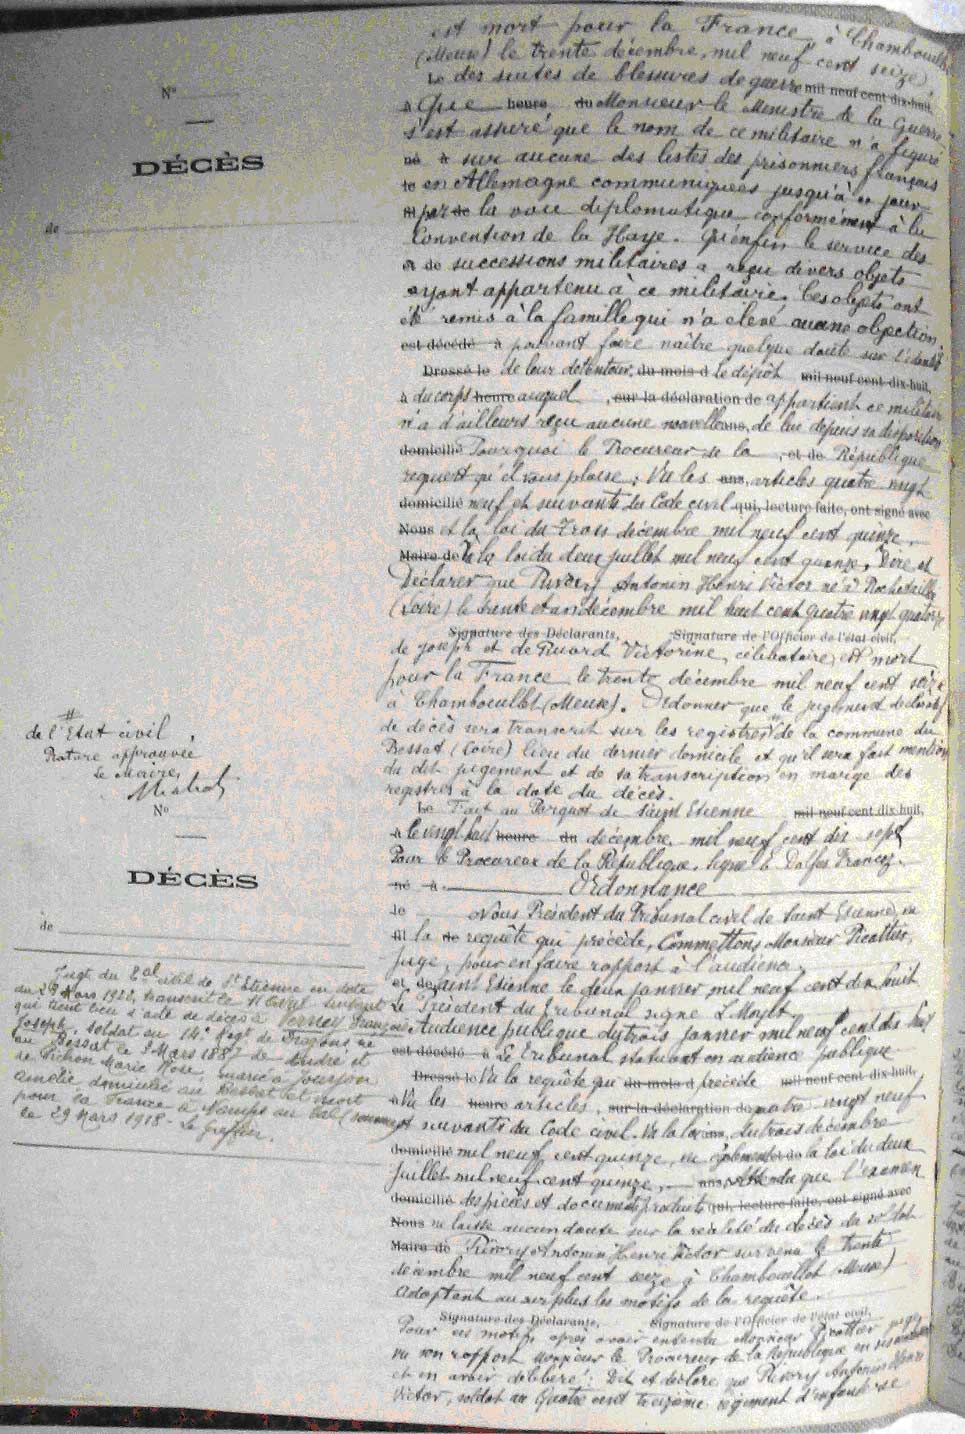 N°
DÉCÈS
de
#
de l'Etat civil
Rature approuvée
Le Maire,
N°
DÉCÈS
de
Jugt du Bal civil de St Etienne en date
du 29 Mars 1922, transcrit le 11 suivant
qui tient lieu d'acte de décès à Verney François
Joseph, soldat au 14e Regt de Dragons né
au Bessat le 9 Mars 1887 de André et
de Pichon Marie Rose, marié à Fourjon
Amélie domicilié au Bessat et mort
pour la France à Namps au Val (Somme)
le 29 Mars 1918 - Le Greffier.
est mort pour la France à Chambouillet
(Meuse) le trente décembre mil neuf cent seize
Le des suites de blessures de guerre mil neuf cent dix-huit,
à Que heure du Monsieur le Ministre de la Guerre
s'est assuré que le nom de ce militaire n'a figuré
né à sur aucune des listes des prisonniers français
le en Allemagne communiquées jusqu'à ce jour
fil par de la voie diplomatique conformément à la
Convention de la Haye. Qu'enfin le service des
et de successions militaires a reçu divers objets
ayant appartenu à ce militaire. Ces objets ont
été remis à la famille qui n'a élevé aucune objection
est décédé à pouvant faire naître quelque doute sur l'identité
Dressé le de leur détenteur, du mois d Le dépôt mil neuf cent dix-huit,
à du corps heure auquel , sur la déclaration de appartient ce militaire
n'a d'ailleurs reçu aucune nouvelle ans, de lui depuis sa disparition
domicilié Pourquoi le Procureur de la , et de République
requiert qu'il vous plaise : Vu les ans, articles quatre vingt
domicilié neuf et suivants du Code civil qui, lecture faite, ont signé avec
Nous et la loi du Trois décembre mil neuf cent quinze.
Maire de Vu la loi du deux juillet mil neuf cent quinze, Dire et
Déclarer que Rivory Antonin Henri Victor né à Rochetaillée
(Loire) le trente et un décembre mil huit cent quatre vingt quatorze
Signature des Déclarants, Signature de l'Officier de l'état civil,
de Joseph et de Ruard Victorine, célibataire, est mort
pour la France le trente décembre mil neuf cent seize
à Chambouillet (Meuse). Ordonner que le jugement déclaratif
de décès sera transcrit sur les registres # de la commune du
Bessat (Loire) lieu du dernier domicile et qu'il sera fait mention
du dit jugement et de sa transcription en marge des
registres à la date du décès.
Le Fait au Parquet de Saint Etienne mil neuf cent dix-huit,
à le vingt huit heure du décembre mil neuf cent dix sept
Pour le Procureur de la République. Signé
né à Ordonnance
le Nous Président du Tribunal civil de Saint Etienne, vu
fil la de requête qui précède, Commettons Monsieur Picattier,
juge, pour en faire rapport à l'audience.
et de Saint Etienne le deux janvier mil neuf cent dix huit
Le Président du Tribunal signé
Audience publique du trois janvier mil neuf cent dix huit
est décédé à Le Tribunal statuant en audience publique
Dressé le Vu la requête qui du mois d précède mil neuf cent dix-huit,
à Vu les heure articles, sur la déclaration de quatre vingt neuf
et suivants du Code civil. Vu la loi ans, du trois décembre
domicilié mil neuf cent quinze, vu également et de la loi du deux
juillet mil neuf cent quinze, ans, Attendu que l'examen
domicilié des pièces et documents produits qui, lecture faite, ont signé avec
Nous ne laisse aucun doute sur la réalité du décès du soldat
Maire de Rivory Antonin Henri Victor survenu le trente
décembre mil neuf cent seize à Chambouillet (Meuse)
Adoptant au surplus les motifs de la requête.
Signature des Déclarants, Signature de l'Officier de l'état civil,
Pour ces motifs après avoir entendu Monsieur Picattier juge
en son rapport Monsieur le Procureur de la République en ses conclusions
et en avoir délibéré : Dit et déclare que Rivory Antonin Henri
Victor, soldat au Quatre cent treizième régiment d'infanterie